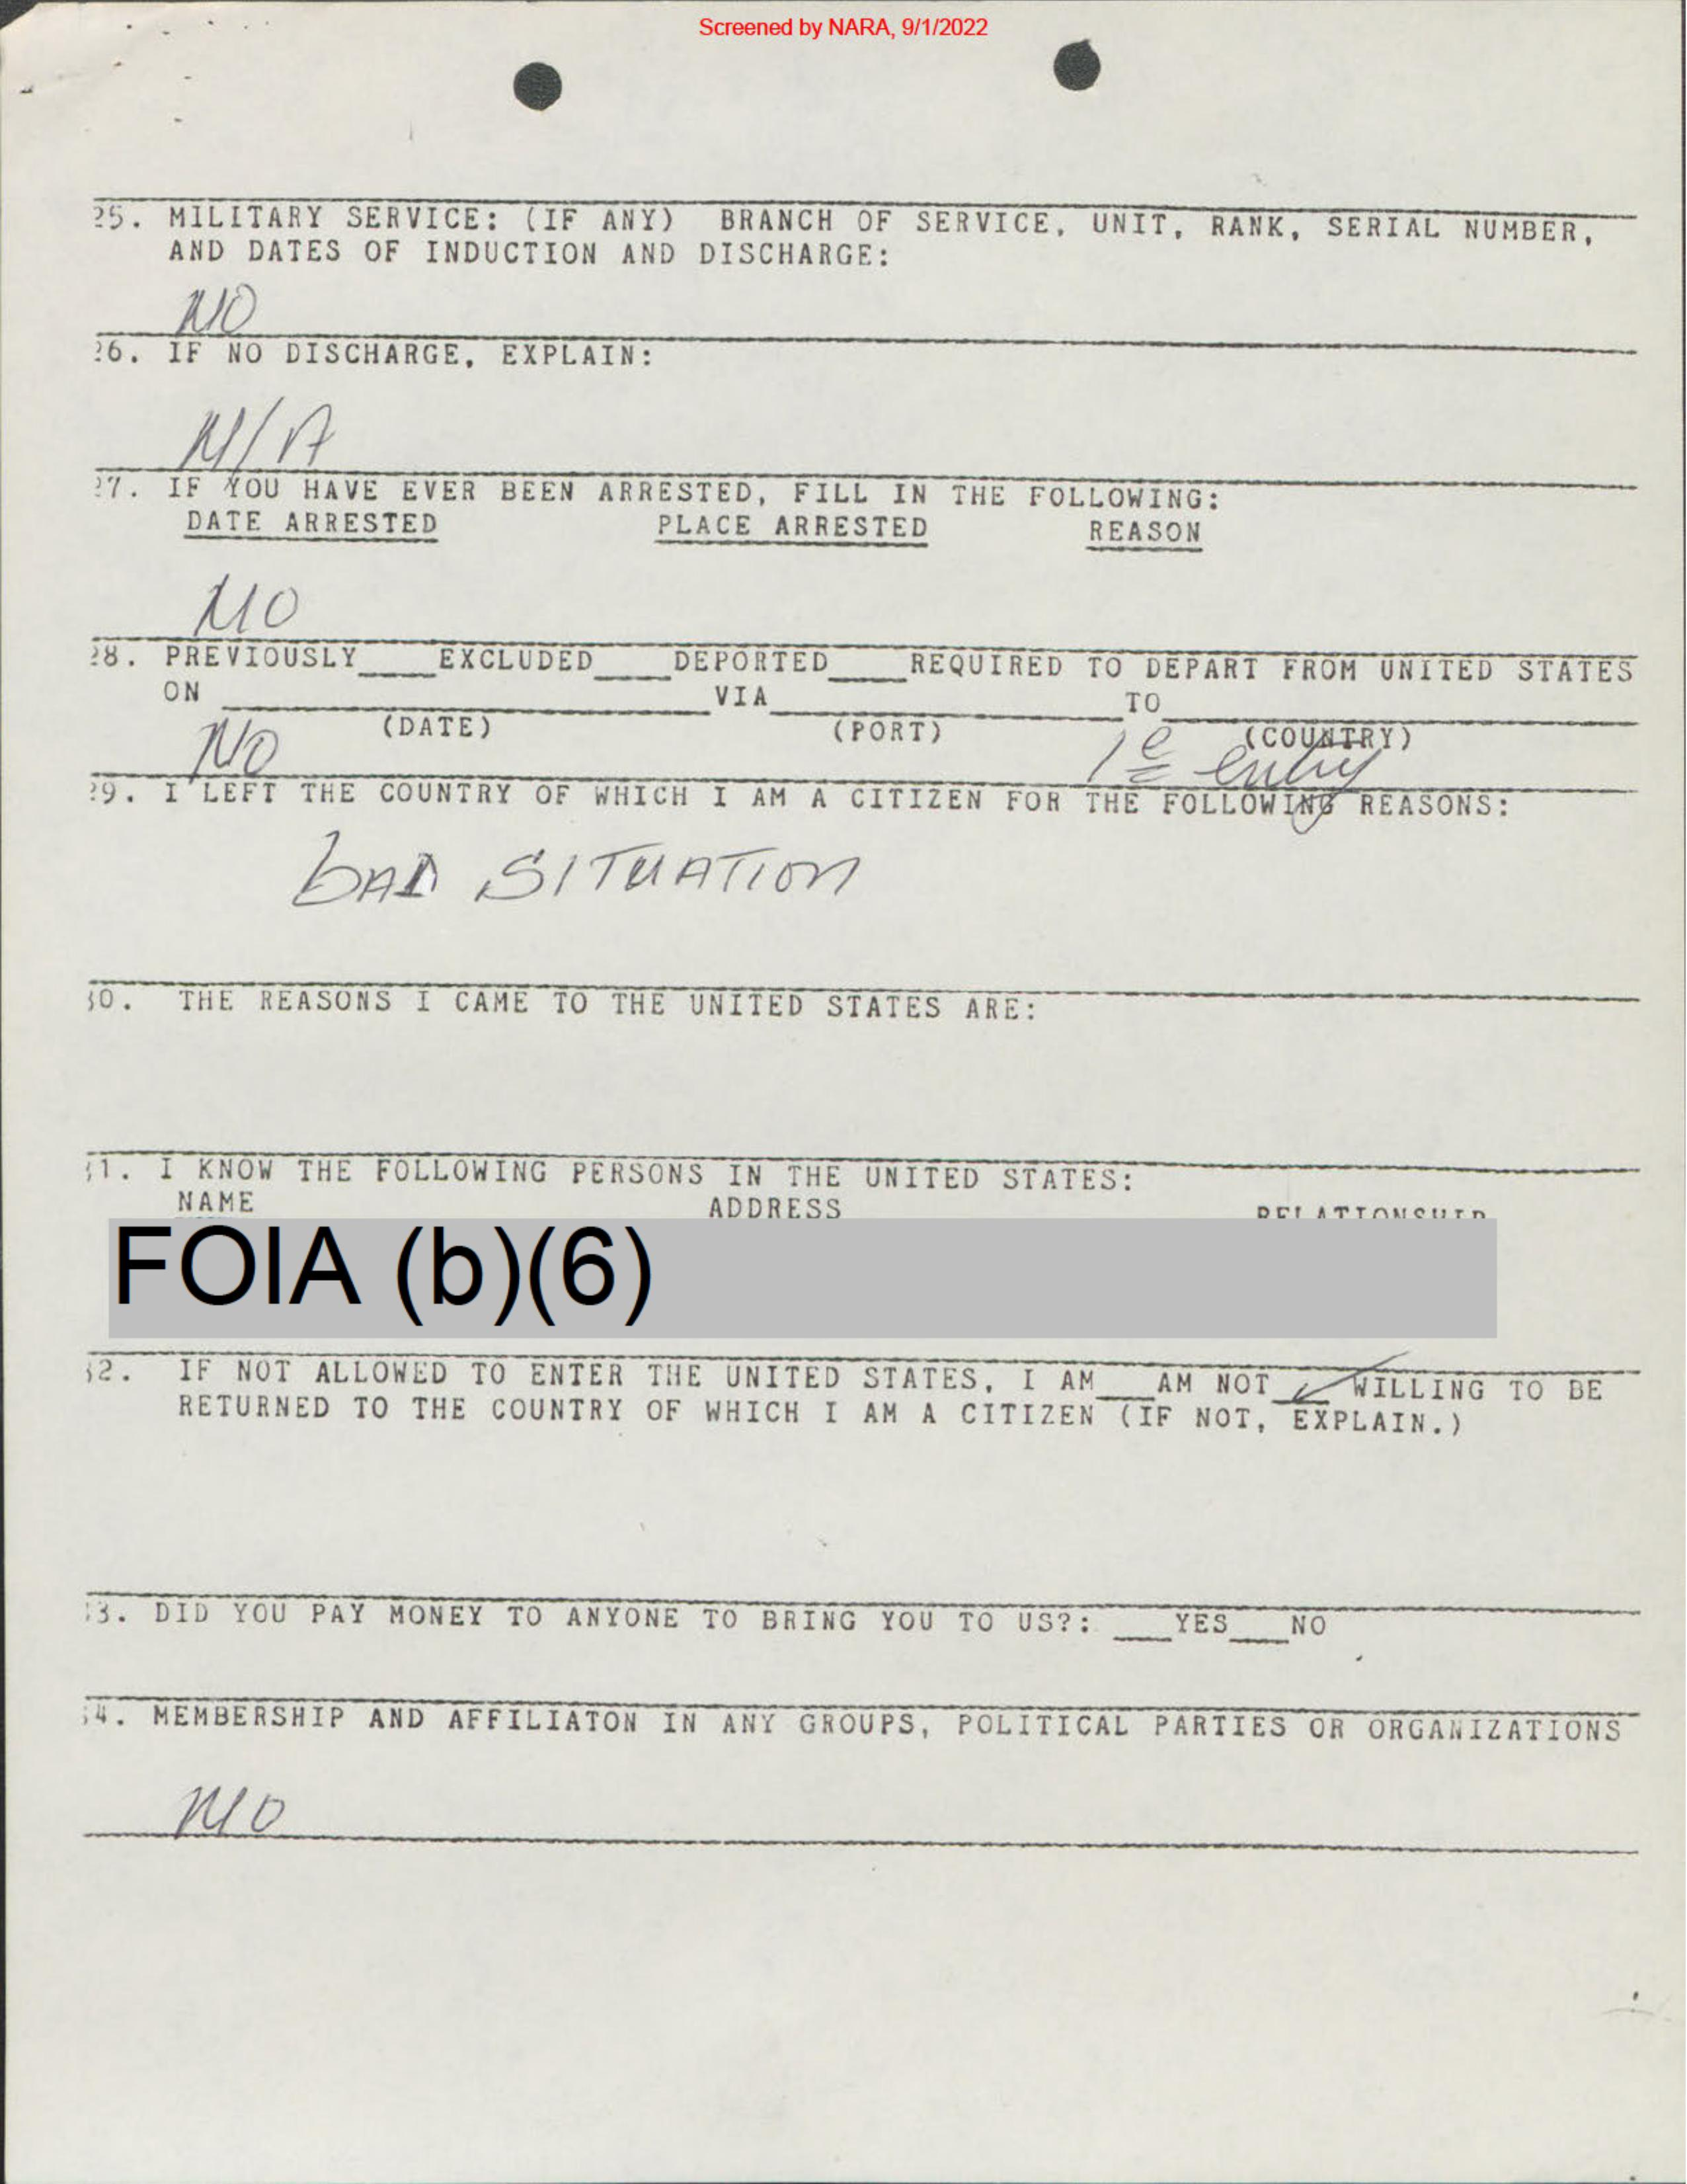 Screened by NARA, 9/1/2022
25. MILITARY SERVICE: (IF ANY) BRANCH OF SERVICE, UNIT, RANK, SERIAL NUMBER,
AND DATES OF INDUCTION AND DISCHARGE:
NO
26. IF NO DISCHARGE, EXPLAIN:
N/A
27. IF YOU HAVE EVER BEEN ARRESTED, FILL IN THE FOLLOWING:
DATE ARRESTED PLACE ARRESTED REASON
NO
28. PREVIOUSLY____EXCLUDED____DEPORTED____REQUIRED TO DEPART FROM UNITED STATES
ON ____ VIA ____ TO ____
(DATE) (PORT) (COUNTRY)
NO 1e entry
29. I LEFT THE COUNTRY OF WHICH I AM A CITIZEN FOR THE FOLLOWING REASONS:
bAD SITUATION
30. THE REASONS I CAME TO THE UNITED STATES ARE:
31. I KNOW THE FOLLOWING PERSONS IN THE UNITED STATES:
NAME ADDRESS RELATIONSHIP
FOIA (b)(6)
32. IF NOT ALLOWED TO ENTER THE UNITED STATES, I AM___AM NOT ✓ WILLING TO BE
RETURNED TO THE COUNTRY OF WHICH I AM A CITIZEN (IF NOT, EXPLAIN.)
33. DID YOU PAY MONEY TO ANYONE TO BRING YOU TO US?: ___YES___NO
34. MEMBERSHIP AND AFFILIATON IN ANY GROUPS, POLITICAL PARTIES OR ORGANIZATIONS
NO